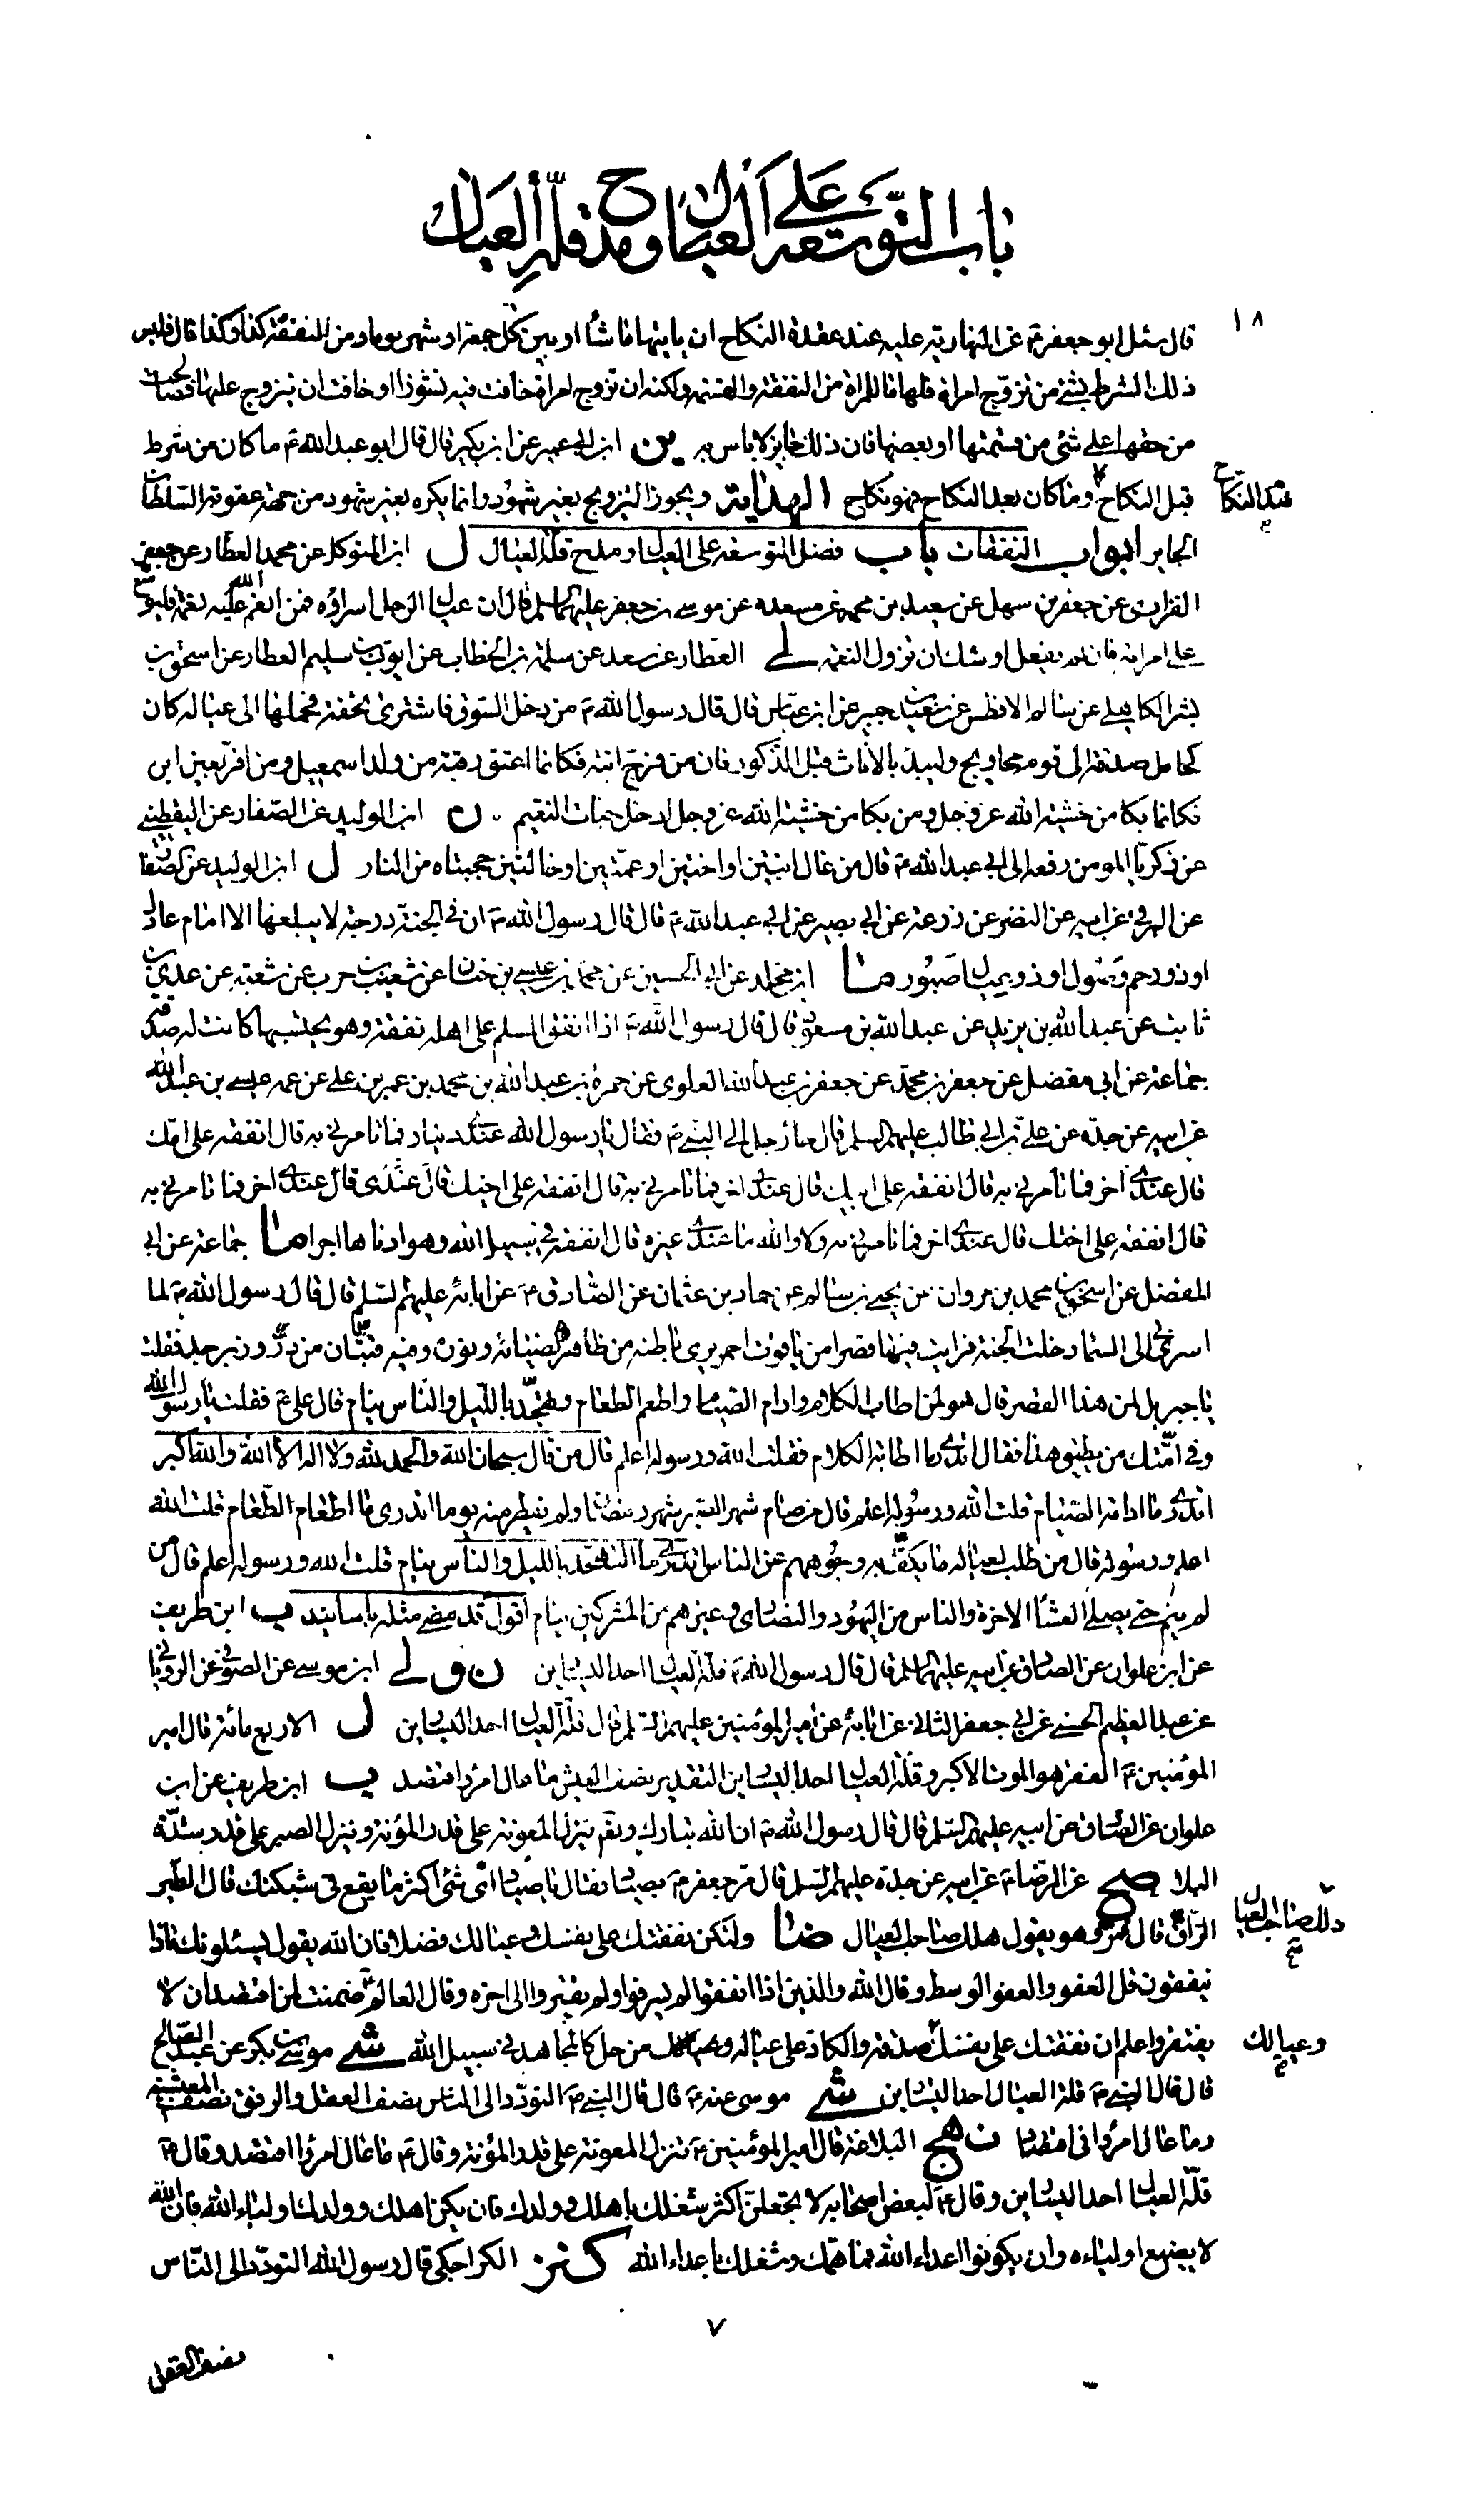 باب التوسعة على العيال ومدح قلة العيال
١٨
قال سئل ابو جعفر ع عن النهارية يشترط عليه عند عقدة النكاح ان ياتيها ما شاء او بين كل جمعة او شهر يوما ومن النفقة كذا وكذا قال فليس
ذلك الشرط بشئ من تزوج امراة فلها ما للمراة من النفقة والقسمة ولكنه ان تزوج امراة خافت فيه نشوزا او خافت ان يتزوج عليها فصالحت
من حقها على شئ من قسمتها او بعضها فان ذلك جايز لا باس به ين ابن ابي عمير عن ابن بكير قال قال ابو عبد الله ع ما كان من شرط
قبل النكاح وما كان بعد النكاح فهو نكاح الهداية ويجوز التزويج بغير شهود وانما يكره بغير شهود من جهة عقوبة السلطان
هدمه النكاح
الجاير ابواب النفقات باب فضل التوسعة على العيال ومدح قلة العيال ل ابن المتوكل عن محمد العطار عن جعفر
الفزاري عن جعفر بن سهل عن سعيد بن محمد عن مسعدة عن موسى بن جعفر عليهما السلم قال ان عيال الرجل اسراؤه فمن انعم الله عليه نعمة فليوسع
على اسرائه فان لم يفعل اوشك ان تزول النعمة لى العطار عن سعد عن سلمة بن الخطاب عن ايوب بن سليم العطار عن اسحق بن
بشر الكاهلي عن سالم الافطس عن سعيد بن جبير عن ابن عباس قال قال رسول الله ص من دخل السوق فاشترى تحفة فحملها الى عياله كان
كحامل صدقة الى قوم محاويج وليبدء بالاناث قبل الذكور فان من فرح ابنته فكانما اعتق رقبة من ولد اسمعيل ومن اقر بعين ابن
فكانما بكا من خشية الله عز وجل ومن بكا من خشية الله عز وجل ادخل جنات النعيم ن ابن الوليد عن الصفار عن اليقطيني
عن زكريا المومن رفعه الى ابي عبد الله ع قال من عال ابنتين او اختين او عمتين او خالتين حجبتاه من النار ل ابن الوليد عن الصفار
عن البرقي عن ابيه عن النضر عن زرعة عن ابي بصير عن ابي عبد الله ع قال قال رسول الله ص ان في الجنة درجة لا يبلغها الا امام عادل
او ذو رحم وصول او ذو عيال صبور ما ابن مخلد عن ابي الحسين عن محمد بن عيسى بن حنان عن شعيب بن حرب عن شعبة عن عدي بن
ثابت عن عبد الله بن يزيد عن عبد الله بن مسعود قال قال رسول الله ص اذا انفق المسلم على اهله نفقة وهو يحتسبها كانت له صدقة
جماعة عن ابي مفضل عن جعفر بن محمد عن جعفر بن عبد الله العلوي عن حمزة بن عبد الله بن محمد بن عمر بن علي عن عمه عيسى بن عبد الله
عن ابيه عن جده عن علي بن ابي طالب عليهم السلم قال جاء رجل الى النبي ص فقال يا رسول الله عندي دينار فما تامرني به قال انفقه على امك
قال عندي اخر فما تامرني به قال انفقه على ابيك قال عندي اخر فما تامرني به قال انفقه على اخيك قال عندي قال عندي اخر فما تامرني به
قال انفقه على اختك قال عندي اخر فما تامرني به ولا والله ما عندي غيره قال انفقه في سبيل الله وهو ادناها اجرا ما جماعة عن ابي
المفضل عن اسحق بن محمد بن مروان عن يحيى بن سالم عن حماد بن عثمان عن الصادق ع عن ابائه عليهم السلم قال قال رسول الله ص لما
اسري بي الى السماء دخلت الجنة فرايت فيها قصرا من ياقوت احمر يرى باطنه من ظاهره لضيائه ونوره وفيه قبتان من در وزبرجد فقلت
يا جبريل لمن هذا القصر قال هو لمن اطاب الكلام وادام الصيام واطعم الطعام وتهجد بالليل والناس نيام قال علي ع فقلت يا رسول الله
وفي امتك من يطيق هذا فقال اتدري ما اطابة الكلام فقلت الله ورسوله اعلم قال من قال سبحان الله والحمد لله ولا اله الا الله والله اكبر
اتدري وما ادامة الصيام قلت الله ورسوله اعلم قال من صام شهر الصبر شهر رمضان ولم يفطر منه يوما اتدري ما اطعام الطعام قلت الله
اعلم ورسوله قال من طلب لعياله ما يكف به وجوههم عن الناس اتدري ما التهجد بالليل والناس نيام قلت الله ورسوله اعلم قال من
لم ينم حتى يصلي العشاء الاخرة والناس من اليهود والنصارى وغيرهم من المشركين نيام اقول قد مضى مثله باسانيد ب ابن طريف
عن ابن علوان عن الصادق عن ابيه عليهما السلم قال قال رسول الله ص قلة العيال احد اليسارين ن ولى ابن موسى عن الصوفي عن الروياني
عن عبد العظيم الحسني عن ابي جعفر الثاني عن ابائه عن امير المؤمنين عليهم السلم قال قلة العيال احد اليسارين ل الاربعمائة قال امير
المؤمنين ع الفقر هو الموت الاكبر وقلة العيال احد اليسارين التقدير نصف العيش ما عال امرؤ اقتصد ب ابن طريف عن ابن
علوان عن الصادق عن ابيه عليهم السلم قال قال رسول الله ص ان الله تبارك وتعم ينزل المعونة على قدر المؤنة وينزل الصبر على قدر شدة
البلاء صح عن الرضا ع عن ابيه عن جده عليهم السلم قال مر جعفر ع بصياد فقال يا صياد اي شئ اكثر ما يقع في شبكتك قال الطير
الزاق قال فمر وهو يقول هلك صاحب العيال ضا ولتكن نفقتك على نفسك وعيالك فضلا فان الله يقول يسئلونك ماذا
ذلك صاحب العيال
ينفقون قل العفو والعفو الوسط وقال الله والذين اذا انفقوا لم يسرفوا ولم يقتروا الى اخره وقال العالم ضمنت لمن اقتصد ان لا
يفتقر واعلم ان نفقتك على نفسك صدقة والكاد على عياله من حل كالمجاهد في سبيل الله شى موسى بن بكر عن عبد الصالح
وعيالك
قال قال النبي ص قلة العيال احد اليسارين شى موسى عنه ع قال قال النبي ص التودد الى الناس نصف العقل والرفق نصف المعيشة
وما عال امرؤ في اقتصاد نهج البلاغة قال امير المؤمنين ع تنزل المعونة على قدر المؤنة وقال ع ما عال امرؤ اقتصد وقال ع
قلة العيال احد اليسارين وقال ع لبعض اصحابه لا تجعلن اكثر شغلك باهلك وولدك فان يكن اهلك وولدك اولياء الله فان الله
لا يضيع اولياءه وان يكونوا اعداء الله فما همك وشغلك باعداء الله كنز الكراجكي قال رسول الله التودد الى الناس
٧
نصف العقل